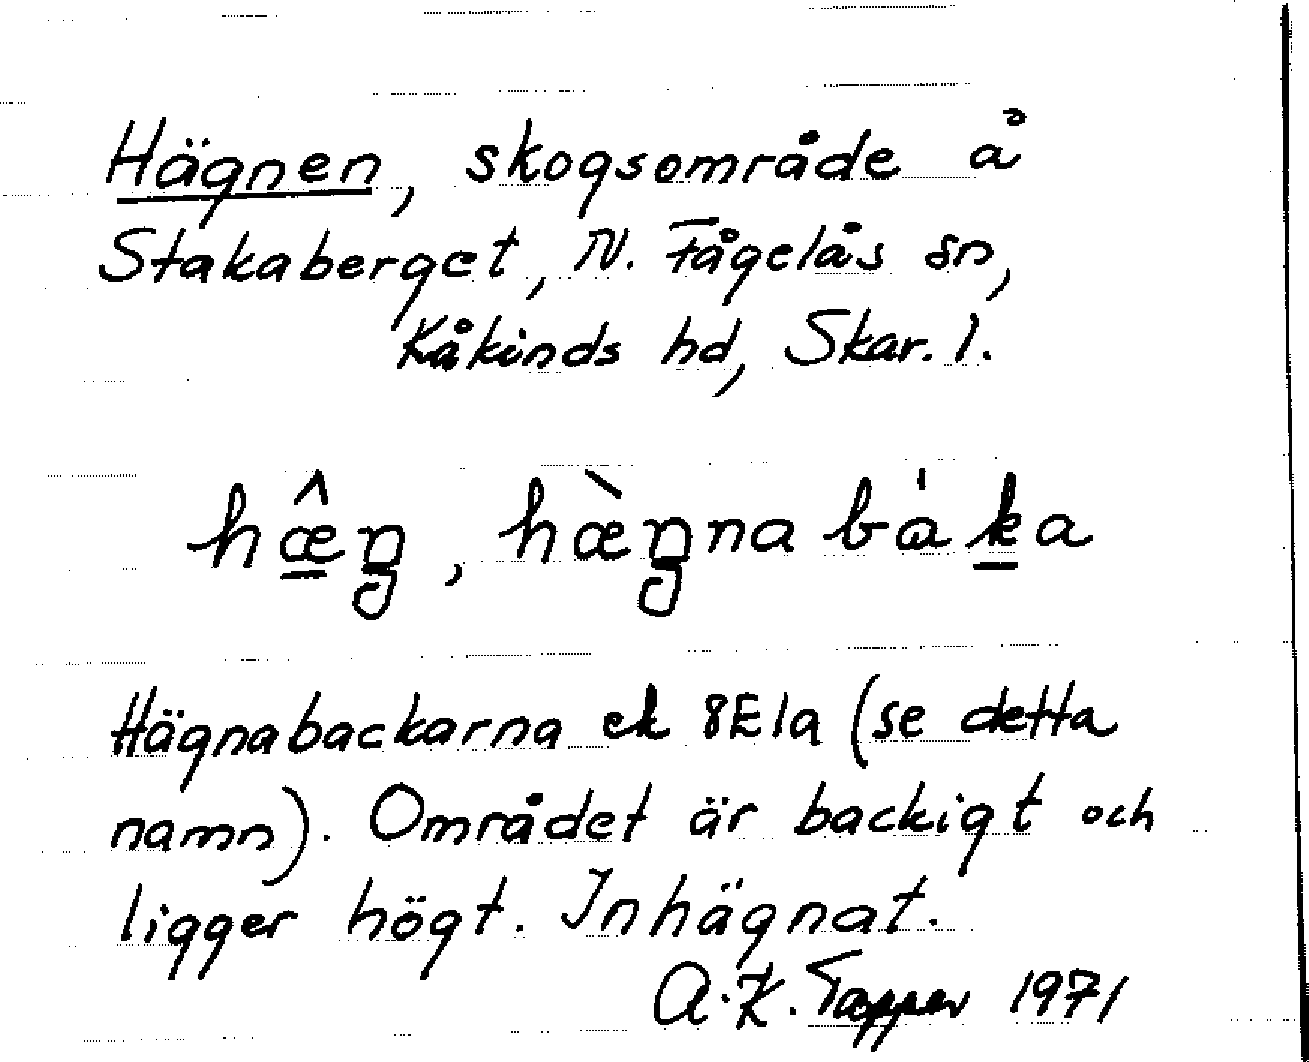 Hägnen, skogsområde å
Stakaberget, N. Fågelås sn,
Kåkinds hd, Skar. l.
hæ̂ŋ, hæ̀ŋna bȧka
Hägnabackarna ek 8E1a (se detta
namn). Området är backigt och
ligger högt. Inhägnat.
A.K. Tapper 1971